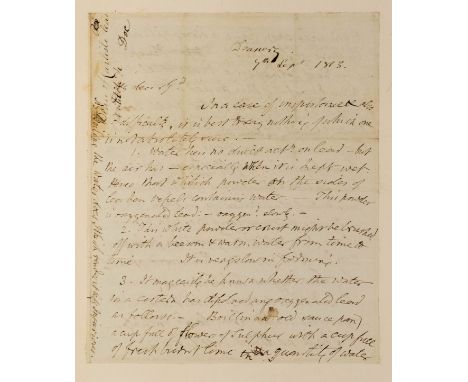 7th Sepr 1803.
dear Sr.
In a case of importance &
difficulty, it is best to say nothing of which one
is not absolutely sure. —
1. Water has no direct actn on lead — but
the air has — especially when it is kept wet
Hence that whitish powder on the sides of
leaden vessels containing water — This powder
is oxygenated lead. —
2. This white powder or crust might be brushed
off with a besom & warm water from time to
time — It is very slow in forming.
3. It may easily be known whether the water
in a cistern has dissolved any oxygenated lead
as follows. — Boil in an old sauce pan
a cup full of flower of Sulphur with a cup full
of fresh burnt lime in a quantity of water